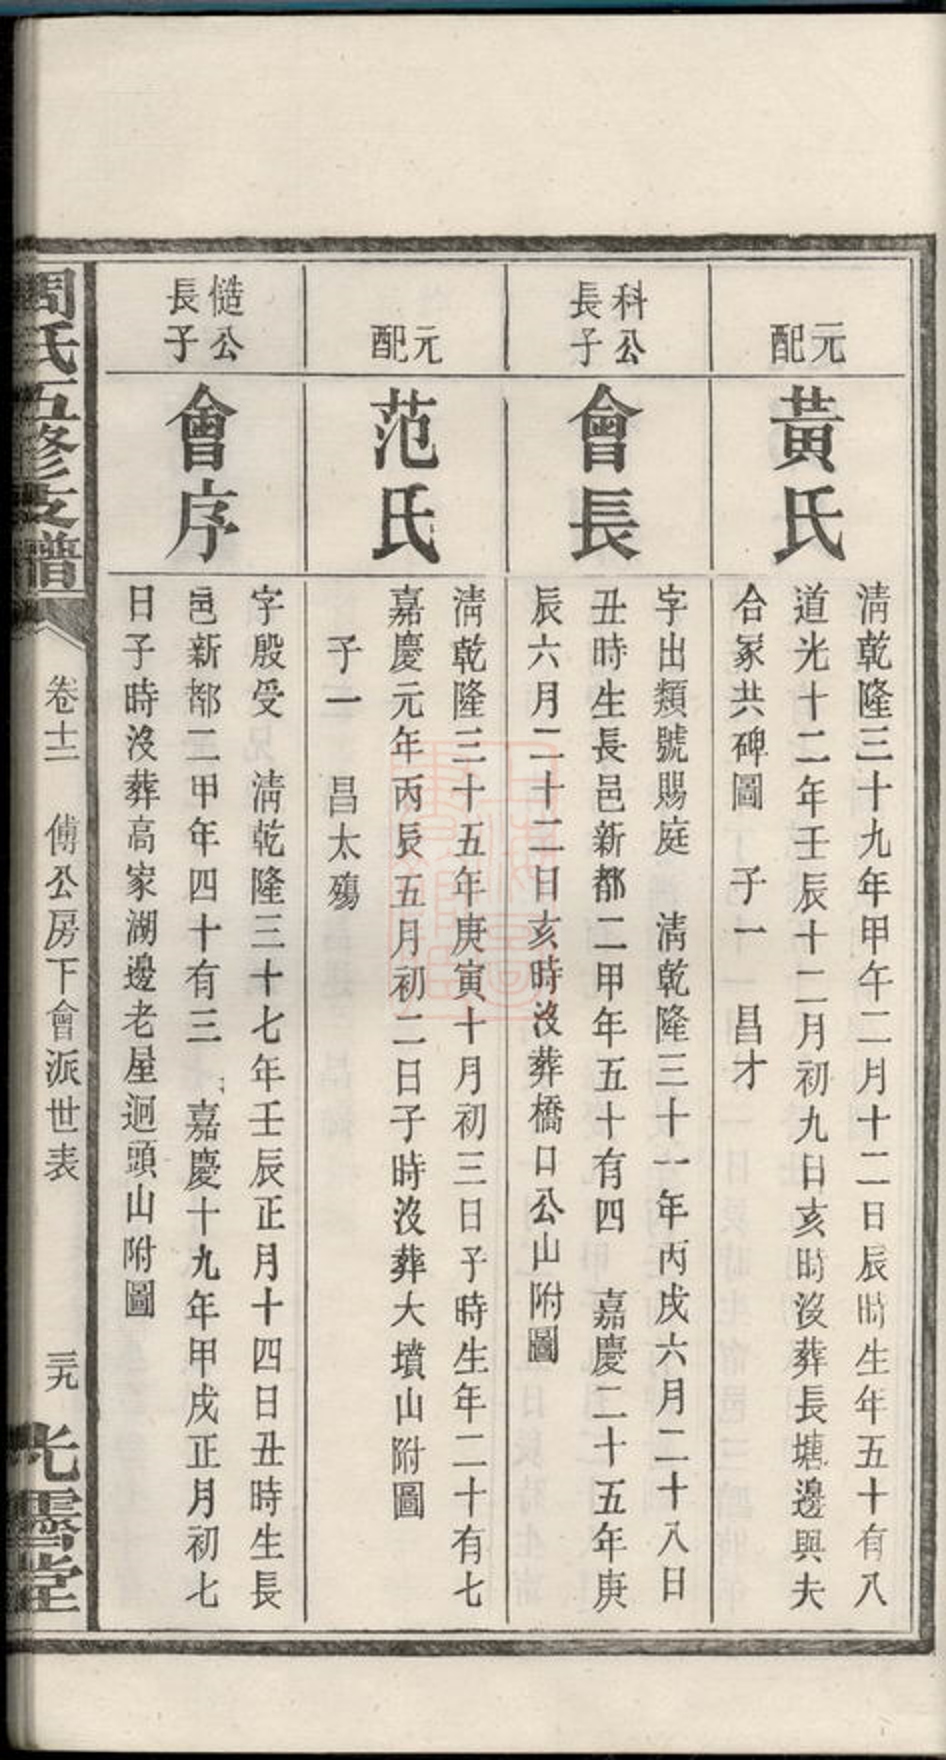 元配
黃氏
淸乾隆三十九年甲午二月十二日辰時生年五十有八
道光十二年壬辰十二月初九日亥時沒葬長塘邊與夫
合冢共碑圖 子一 昌才
科公
長子
會長
字出類號賜庭 淸乾隆三十一年丙戌六月二十八日
丑時生長邑新都二甲年五十有四 嘉慶二十五年庚
辰六月二十二日亥時沒葬橋口公山附圖
元配
范氏
淸乾隆三十五年庚寅十月初三日子時生年二十有七
嘉慶元年丙辰五月初二日子時沒葬大墳山附圖
子一 昌太殤
㦬公
長子
會序
字殷受 淸乾隆三十七年壬辰正月十四日丑時生長
邑新都二甲年四十有三 嘉慶十九年甲戌正月初七
日子時沒葬高家湖邊老屋迴頭山附圖
周氏五修支譜
卷十二 傅公房下會派世表
三九
光霽堂